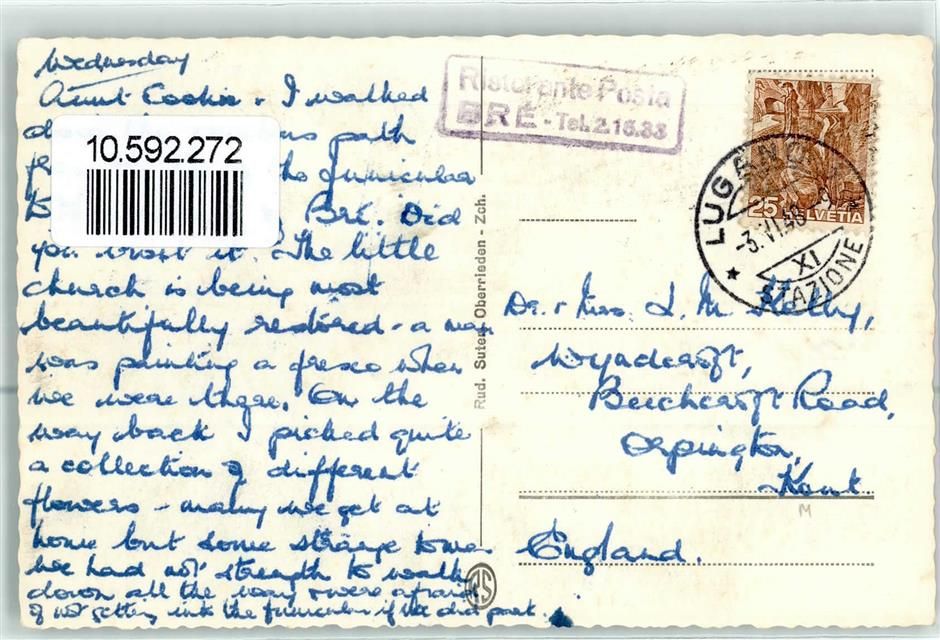 Wednesday
Aunt Cookie + I walked
path
the funicular
to Brè. Did
you visit it. The little
church is being most
beautifully restored - a man
was painting a fresco when
we were there. On the
way back I picked quite
a collection of different
flowers - many we get at
home but some strange to me.
We had not strength to walk
down all the way + were afraid
of not getting into the funicular if we did part.
10.592.272
Rud. Suter, Oberrieden - Zch.
RS
Ristorante Posta
BRÈ - Tel. 2.15.33
25 HELVETIA
LUGANO
-3.VI.48
XI
STAZIONE
Dr. + Mrs. L. M. Shelby,
Wyndcroft,
Beechcroft Road,
Orpington,
Kent
M
England.